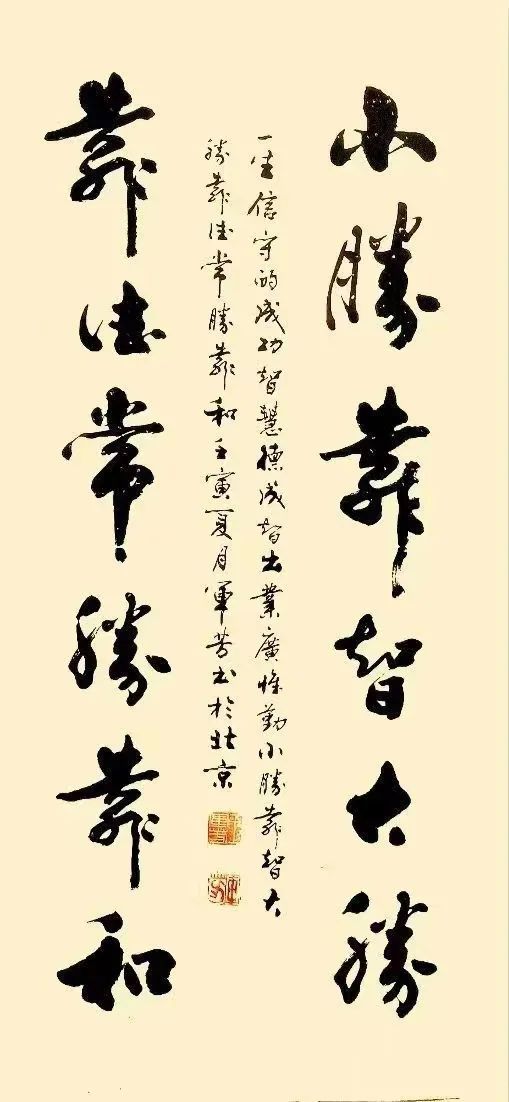 小勝靠智大勝
靠德常勝靠和
一生信守的成功智慧德成智出業廣惟勤小勝靠智大
勝靠德常勝靠和壬寅夏月軍芳书於北京